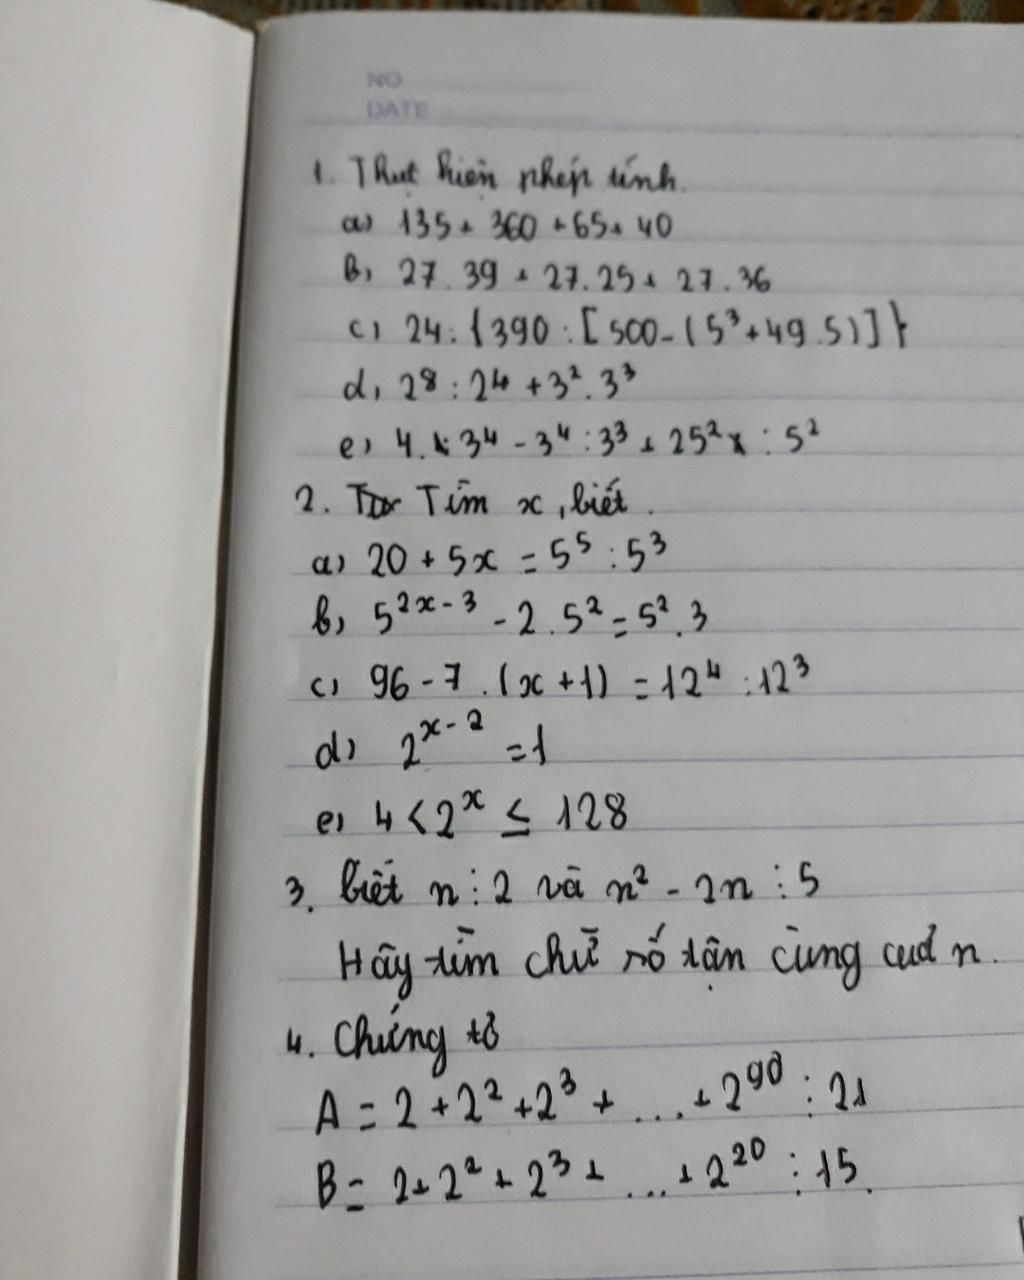 NO
DATE
1. Thực hiện phép tính.
a) 135 + 360 + 65 + 40
b) 27 . 39 + 27 . 25 + 27 . 36
c) 24 : {390 : [500 - (5³ + 49 . 5)]}
d) 2⁸ : 2⁴ + 3² . 3³
e) 4 . 3⁴ - 3⁴ : 3³ + 25² : 5²
2. Tìm x, biết.
a) 20 + 5x = 5⁵ : 5³
b) 5²ˣ⁻³ - 2 . 5² = 5² . 3
c) 96 - 7 . (x + 1) = 12⁴ : 12³
d) 2ˣ⁻² = 1
e) 4 < 2ˣ ≤ 128
3. biết n ⋮ 2 và n² - 2n ⋮ 5
Hãy tìm chữ số tận cùng của n.
4. Chứng tỏ
A = 2 + 2² + 2³ + ... + 2⁹⁰ ⋮ 21
B = 2 + 2² + 2³ + ... + 2²⁰ ⋮ 15.